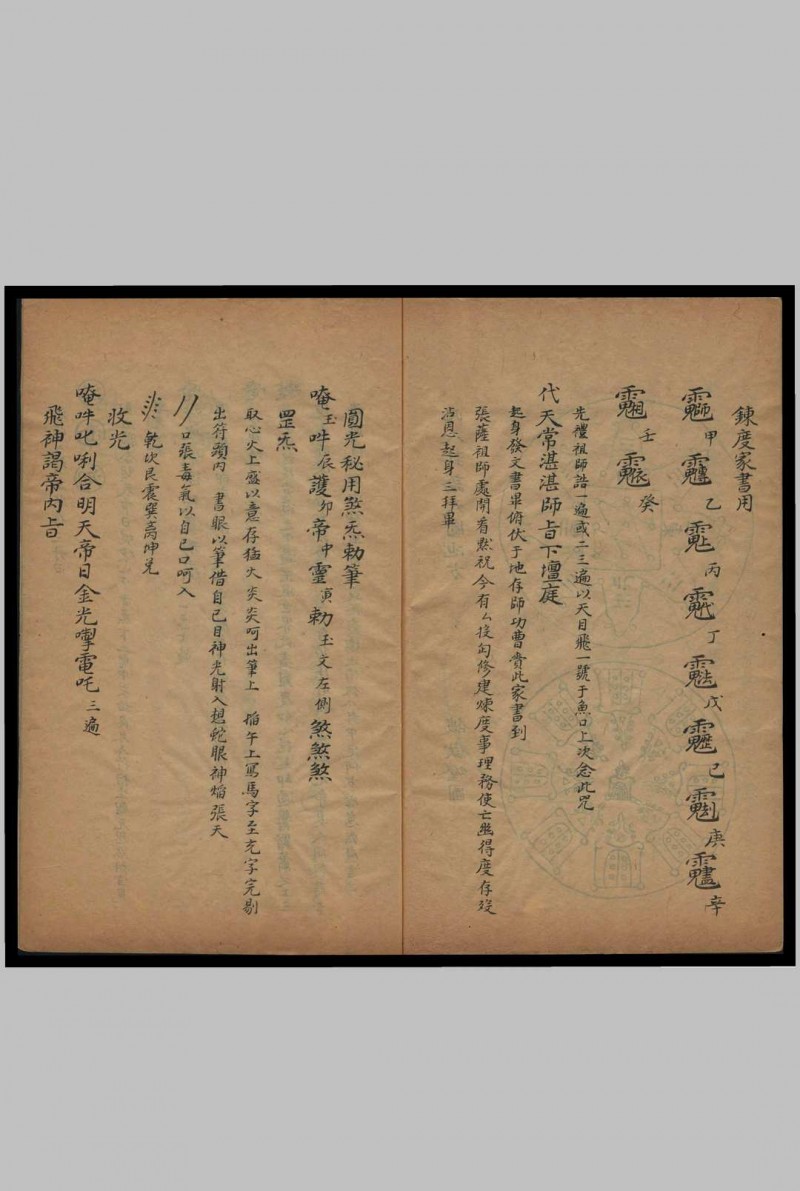 鍊度家書用
甲 乙 丙 丁 戊 己 庚 辛
壬 癸
先禮祖師誥一遍或二三遍以天目飛一號于魚口上次念此咒
代天常湛湛師旨下壇庭
起身發文書畢俯伏于地存師功曹賫此家書到
張薩祖師處開看黙祝今有厶投函修建煉度事理務使亡幽得度存歿
沾恩起身三拜畢
圓光秘用煞炁勅筆
唵玉吽辰護卯帝申靈寅勅玉文左側煞煞煞
罡炁
取心火上盛以意存猛火炎炎呵出筆上 熖午上寫馬字至充字完剔
出符頭內 書眼以筆借自己目神光射入想蛇眼神熖張天
口張毒氣以自己口呵入
乾坎艮震巽离坤兌
收光
唵吽叱唎合明天帝日金光㘄電吒三遍
飛神謁帝內旨